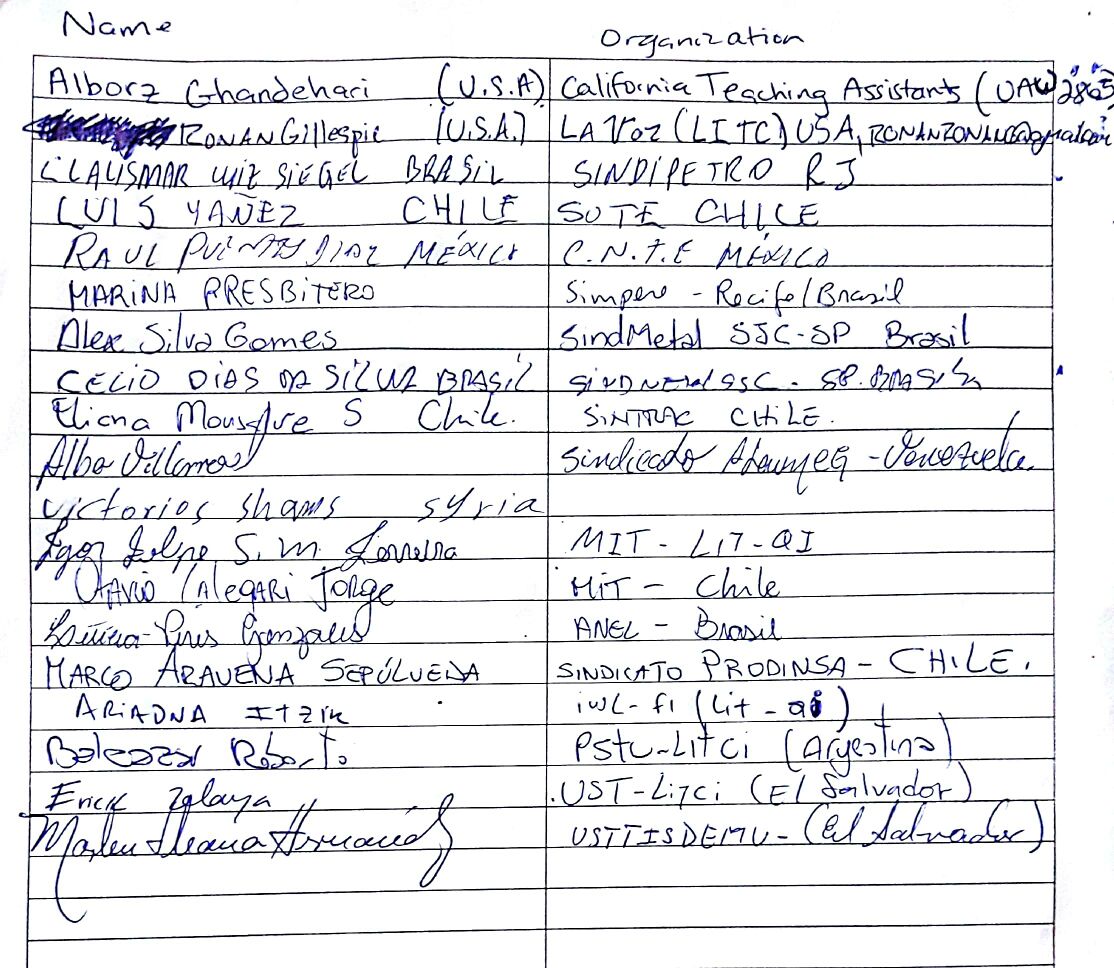 Name Organization
Alborz Ghandehari (U.S.A) California Teaching Assistants (UAW 2865)
RONAN Gillespie (U.S.A.) LA Voz (LITC) USA,
CLAUSMAR LUIZ SIEGEL BRASIL SINDIPETRO RJ
LUIS YAÑEZ CHILE SUTE CHILE
RAUL DIAZ MÉXICO C.N.T.E MÉXICO
MARINA PRESBITERO Simpere - Recife/Brasil
Alex Silva Gomes SindMetal SJC-SP Brasil
CÉLIO DIAS DA SILVA BRASIL SJC - SP. BRASIL
Eliana S Chile. SINTRAC CHILE.
Alba Sindicado - Venezuela
victorios shams syria
Igor Felipe S. M. Ferreira MIT - LIT-QI
OTAVIO CALEGARI JORGE MIT - Chile
Pires Gonzales ANEL - Brasil
MARCO ARAVENA SEPÚLVEDA SINDICATO PRODINSA - CHILE.
ARIADNA ITZIK iwl-fi (Lit-qi)
Roberto PSTU-LITci (Argentina)
Erick Zelaya .UST-Litci (El Salvador)
Marlen Ileana USTTISDEMU - (El Salvador)